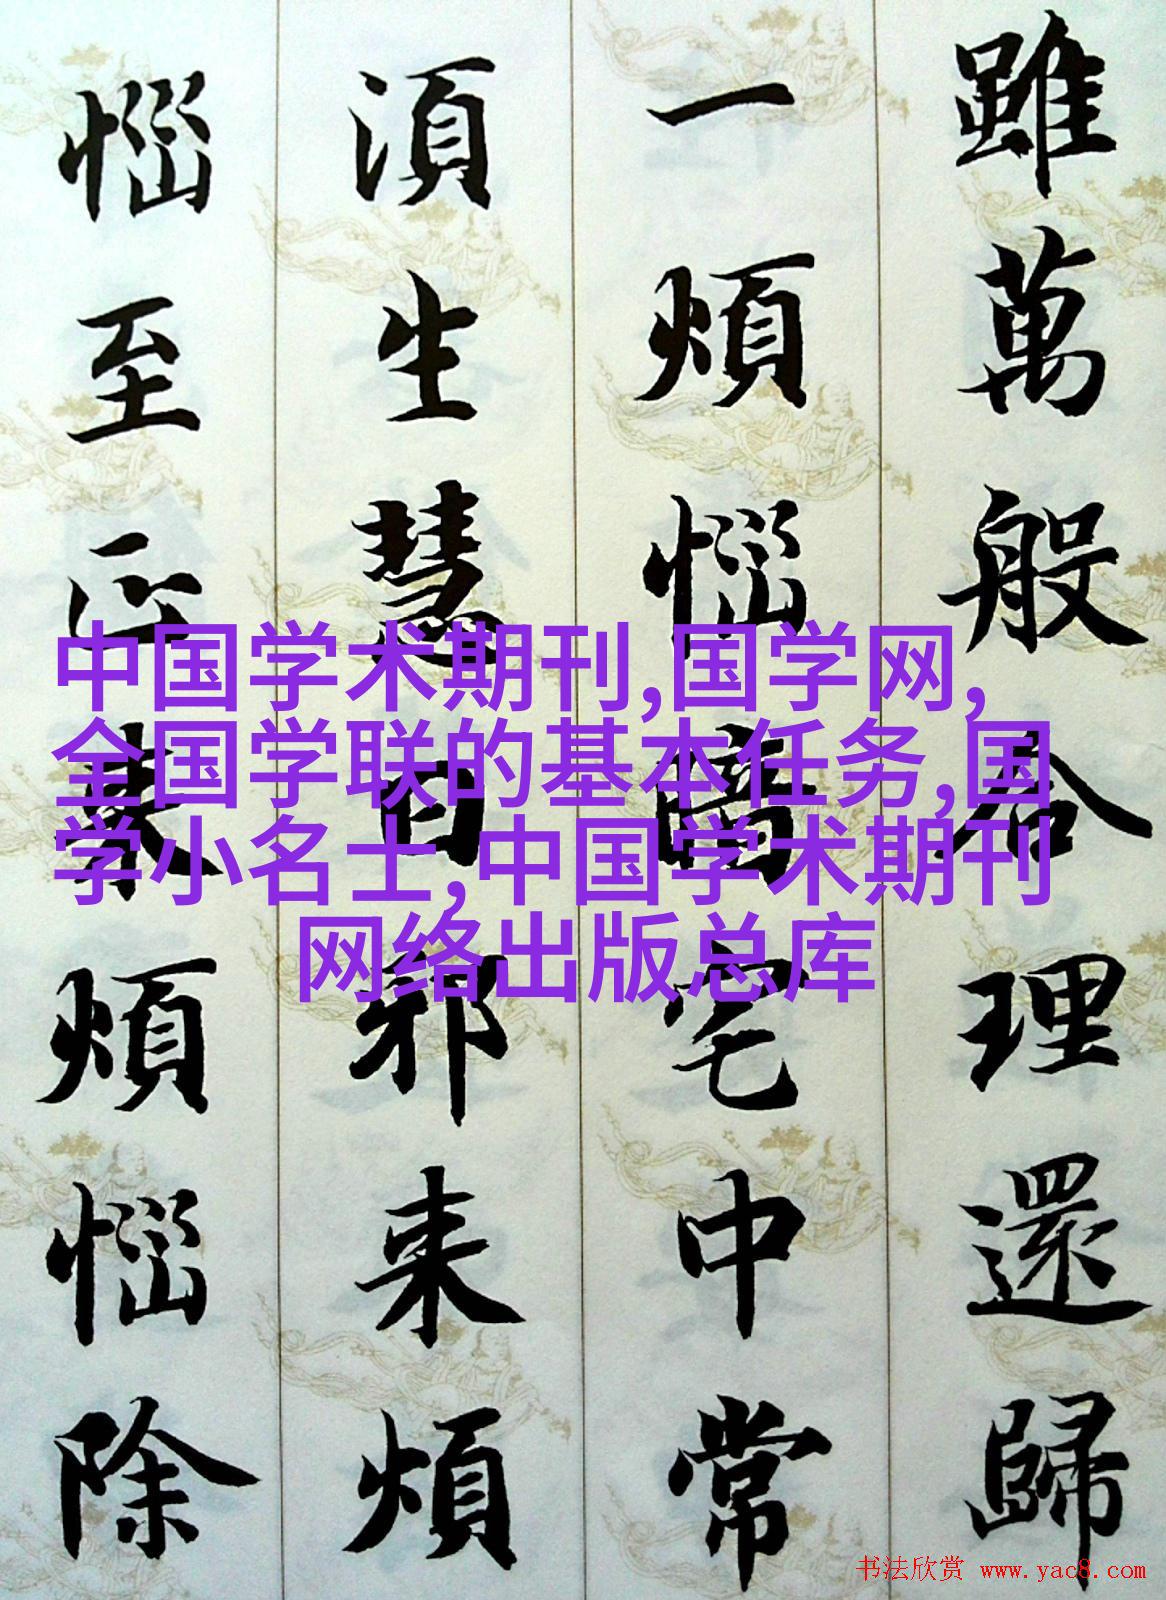 雖萬般合理還歸
一煩惱暗宅中常
湏生慧日邪来煩
惱至正来煩惱除
中国学术期刊,国学网,
全国学联的基本任务,国
学小名士,中国学术期刊
网络出版总库
书法欣赏 www.yac8.com